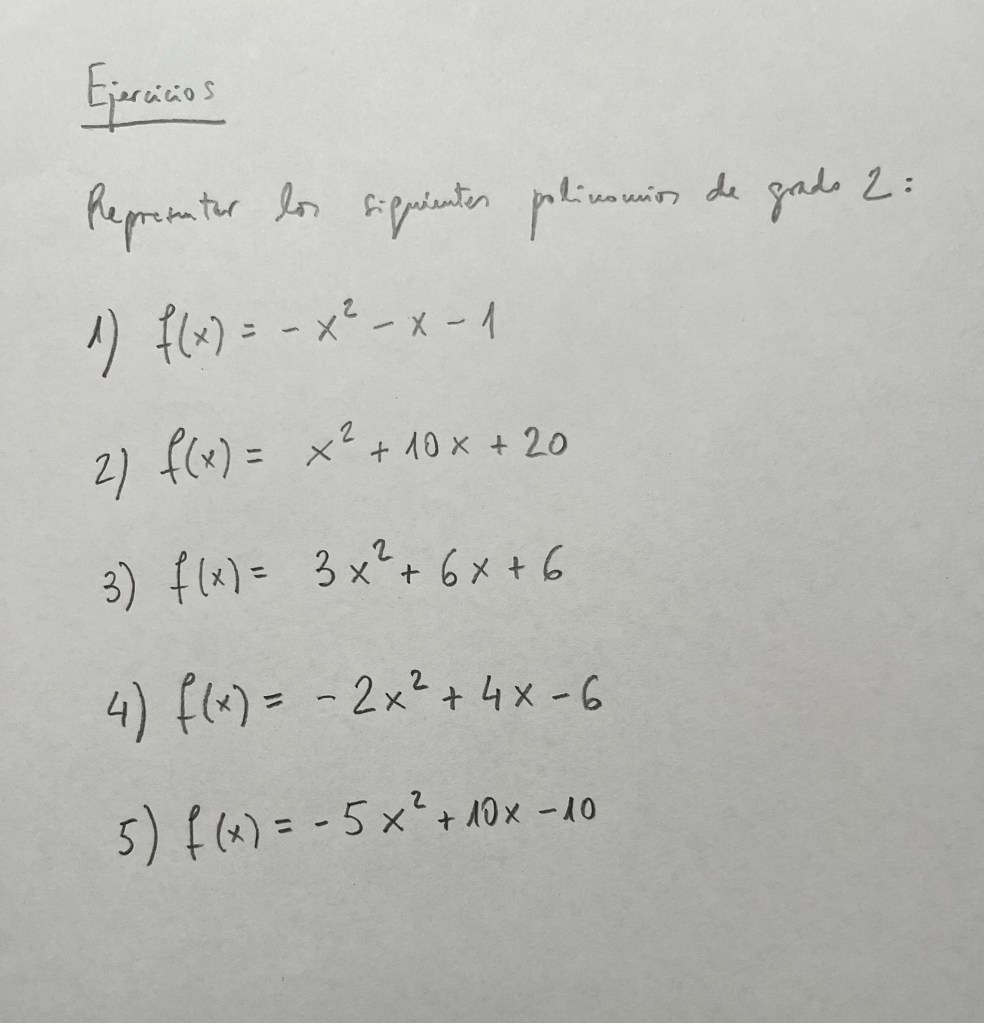 Ejercicios
Representar los siguientes polinomios de grado 2:
1) f(x) = - x² - x - 1
2) f(x) = x² + 10x + 20
3) f(x) = 3x² + 6x + 6
4) f(x) = - 2x² + 4x - 6
5) f(x) = - 5x² + 10x - 10